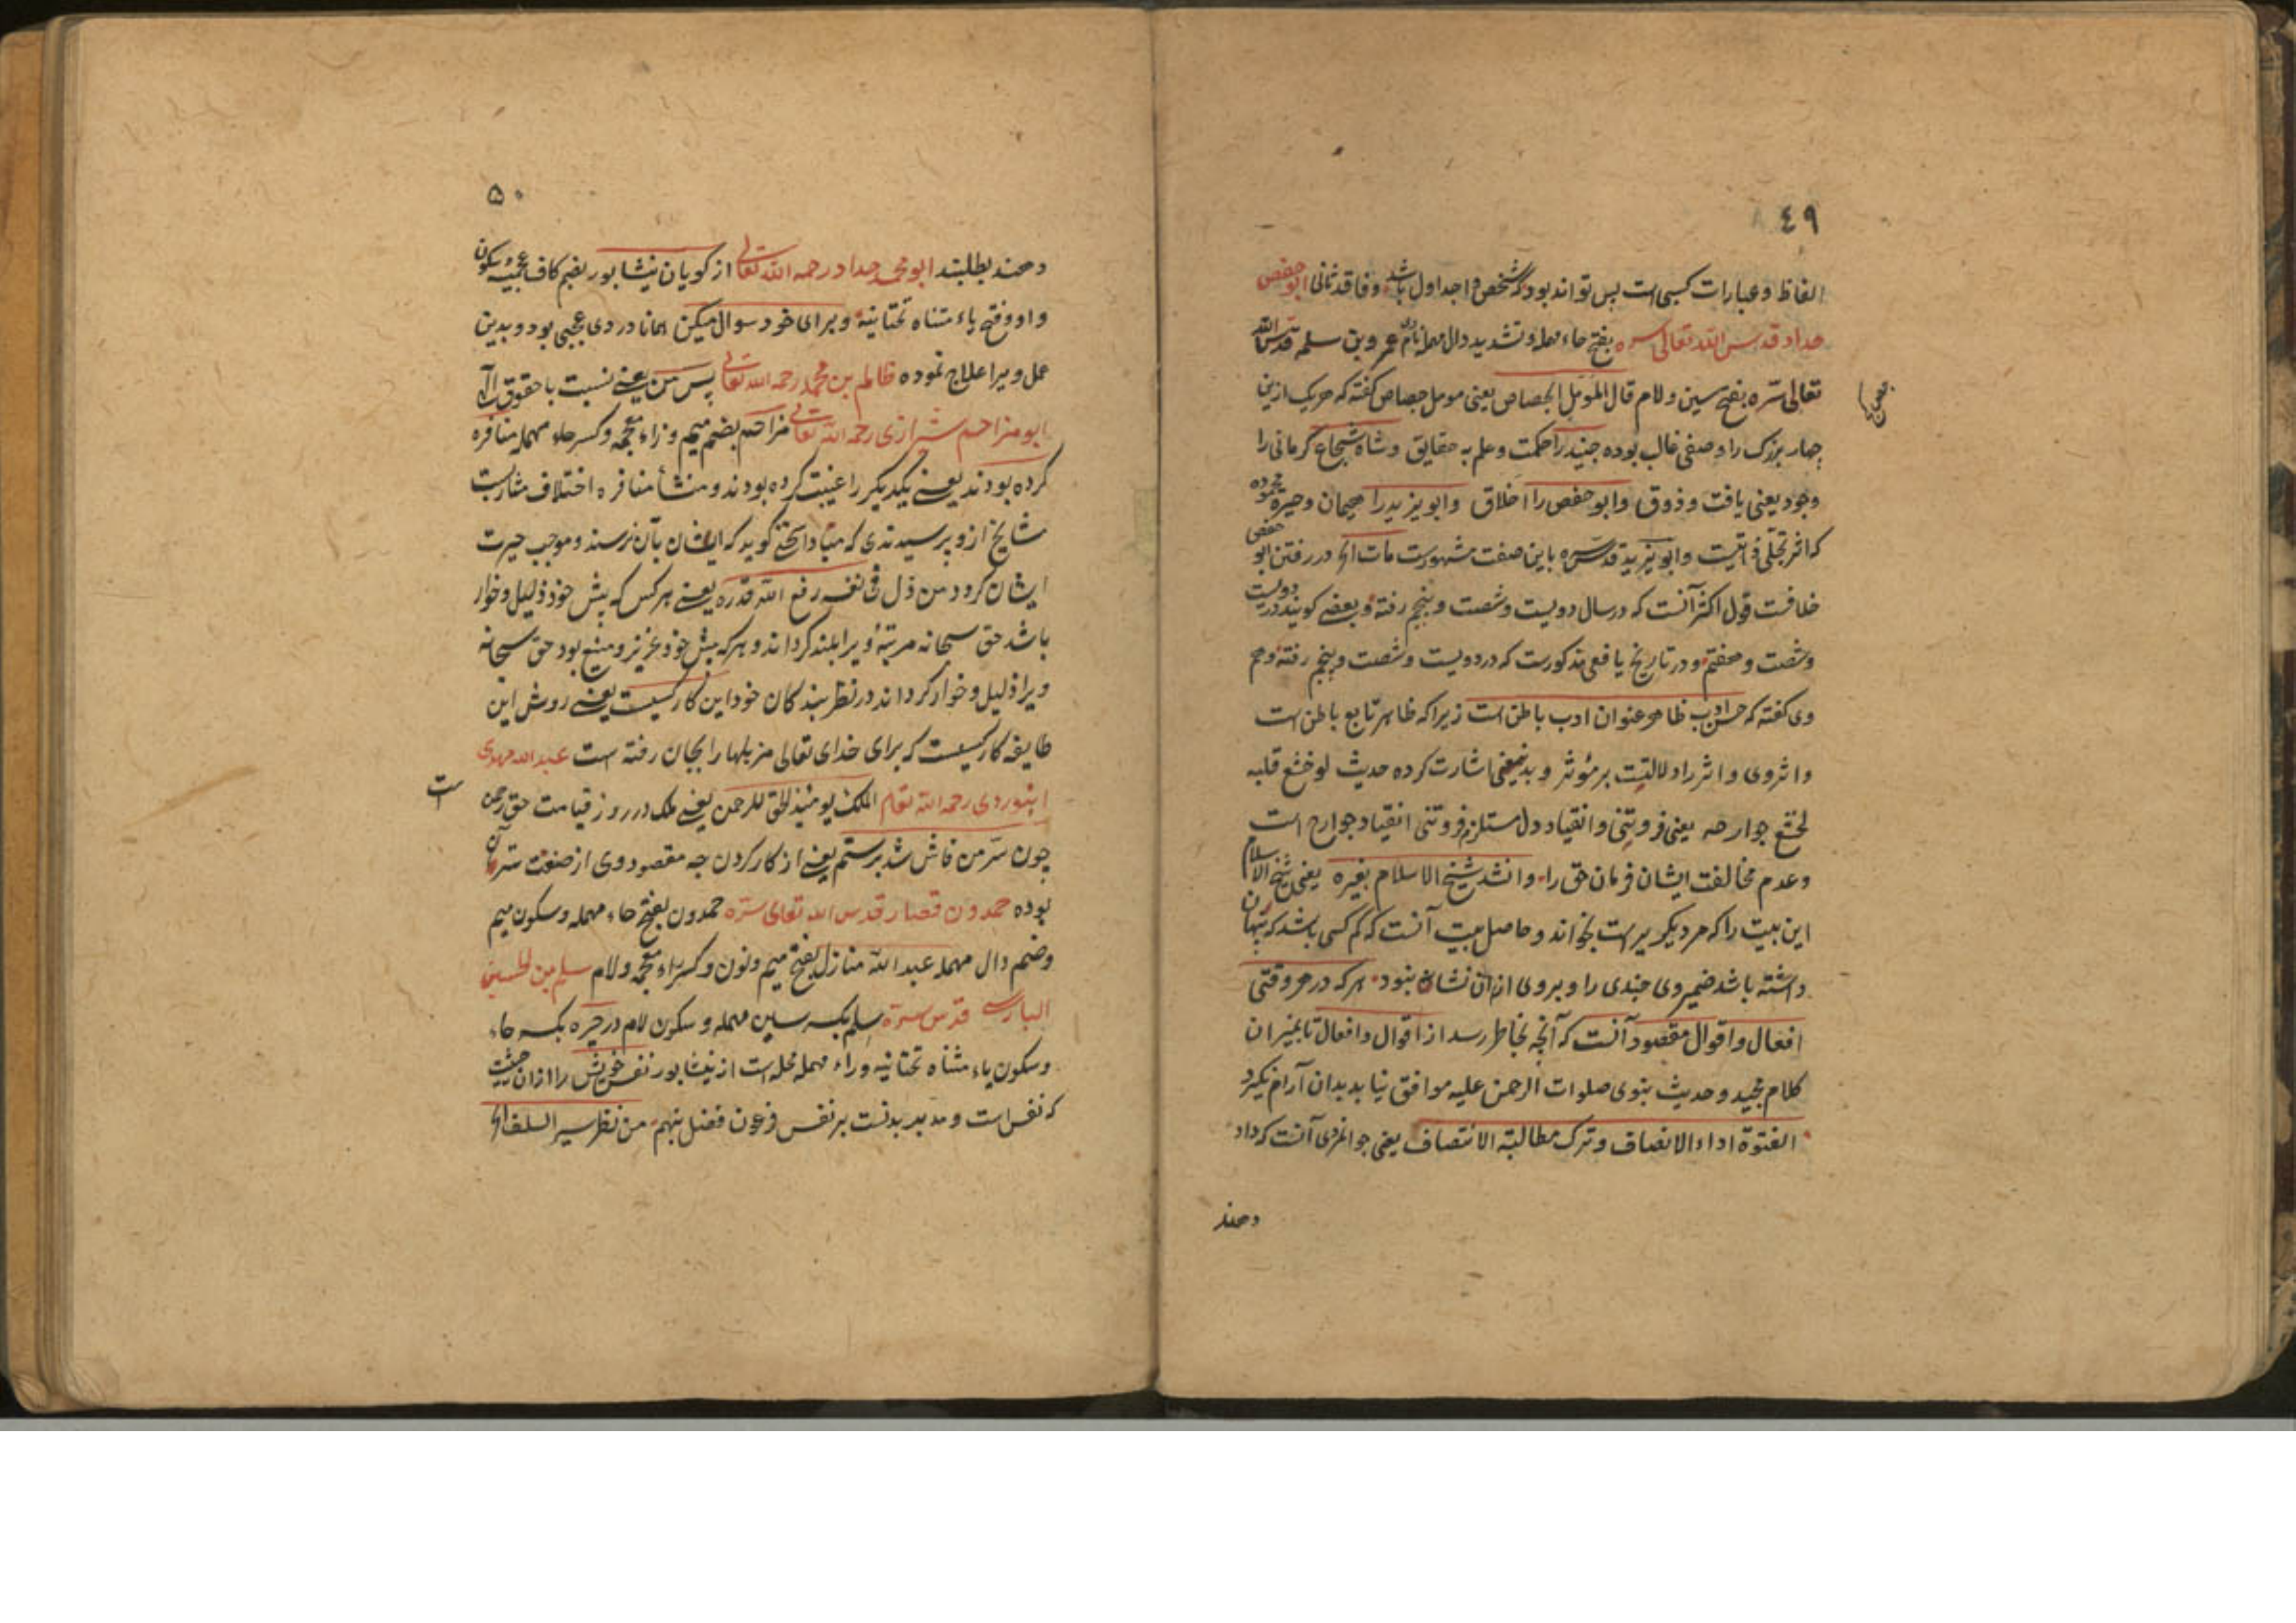 ٤٩
الفاظ و عبارات کسی است پس تواند بود که شخص واجد اول باشد و فاقد ثانی ابو حفص
حداد قدس الله تعالی سره بفتح حاء مهمله و تشدید دال مهمله نام عمرو بن سلمه قدس الله
تعالی سره بفتح سین و لام قال المؤمل الجصاص یعنی مومل جصاص کفته که هر یک ازین
چهار بزرک را وصفی غالب بوده جنید را حکمت و علم به حقایق و شاه شجاع کرمانی را
وجود یعنی یافت و ذوق و ابو حفص را اخلاق و ابو یزید را هیمان و حیرة
که اثر تجلی ذاتیست و ابو یزید قدس سره باین صفت مشهورست مات الخ در رفتن ابو حفص
خلافست قول اکثر آنست که در سال دویست و شصت و پنجم رفته و بعضی کویند در دویست
و شصت و هفتم و در تاریخ یافعی مذکورست که در دویست و شصت و پنجم رفته و هم
وی کفته که حسن ادب ظاهر عنوان ادب باطن است زیرا که ظاهر تابع باطن است
و اثر وی و اثر را دلالتیست بر مؤثر و بدینمعنی اشارت کرده حدیث لو خشع قلبه
لخشع جوارحه یعنی فروتنی و انقیاد دل مستلزم فروتنی انقیاد جوارح است
و عدم مخالفت ایشان فرمان حق را و انشد شیخ الاسلام بغیره یعنی شیخ الاسلام
این بیت را که مر دیکریراست بخواند و حاصل بیت آنست که کم کسی باشد که پنهان
داشته باشد ضمیر وی چیزی را و بر وی از ان نشان نبود هر که در هر وقتی
افعال و اقوال مقصود آنست که آنچه بخاطر رسد از اقوال و افعال تا بمیزان
کلام مجید و حدیث نبوی صلوات الرحمن علیه موافق نیابد بدان آرام نکیرد
الفتوة اداء الانصاف و ترک مطالبة الانتصاف یعنی جوانمردی آنست که داد
دهند
۵۰
دهند بطلبند ابو محمد حداد رحمه الله تعالی از کویان نیشابور بضم کاف عجمیه و سکون
واو و فتح یاء مثناه تحتانیه و برای خود سوال میکن همانا در وی عجبی بود و بدین
عمل ویرا علاج نموده ظالم بن محمد رحمه الله تعالی پس من یعنی نسبت با حقوق
ابو مزاحم شیرازی رحمه الله تعالی مزاحم بضم میم و زاء معجمه و کسر حاء مهمله منافره
کرده بودند یعنی یکدیکر را غیبت کرده بودند و منشأ منافره اختلاف مشاربست
مشایخ از و پرسیدندی که مبادا سخنی کوید که ایشان بآن نرسند و موجب حیرت
ایشان کردد من ذل فی نفسه رفع الله قدره یعنی هر کس که پیش خود ذلیل و خوار
باشد حق سبحانه مرتبهٔ ویرا بلند کرداند و هر که پیش خود عزیز و منیع بود حق سبحانه
ویرا ذلیل و خوار کرداند در نظر بندکان خود این کاریست یعنی روش این
طایفه کاریست که برای خدای تعالی مزبلها را بجان رفته است عبد الله مهدی
ابیوردی رحمه الله تعالی الملک یومئذ الحق للرحمن یعنی ملک در روز قیامت حق رحمن است
چون سر من فاش شد برستم یعنی از کار کردن چه مقصود وی از صنعت ستر آن
بوده حمدون قصار قدس الله تعالی سره حمدون بفتح حاء مهمله و سکون میم
و ضم دال مهمله عبد الله منازل بفتح میم و نون و کسر زاء معجمه و لام سلم بن الحسین
الباروسی قدس سره سلم بکسر سین مهمله و سکون لام در حیره بکسر حاء
و سکون یاء مثناه تحتانیه و راء مهمله محله است از نیشابور نفس خویش را از ان حیثیت
که نفس است و مدبر بدنست بر نفس فرعون فضل ننهم من نظر سیر السلف الخ